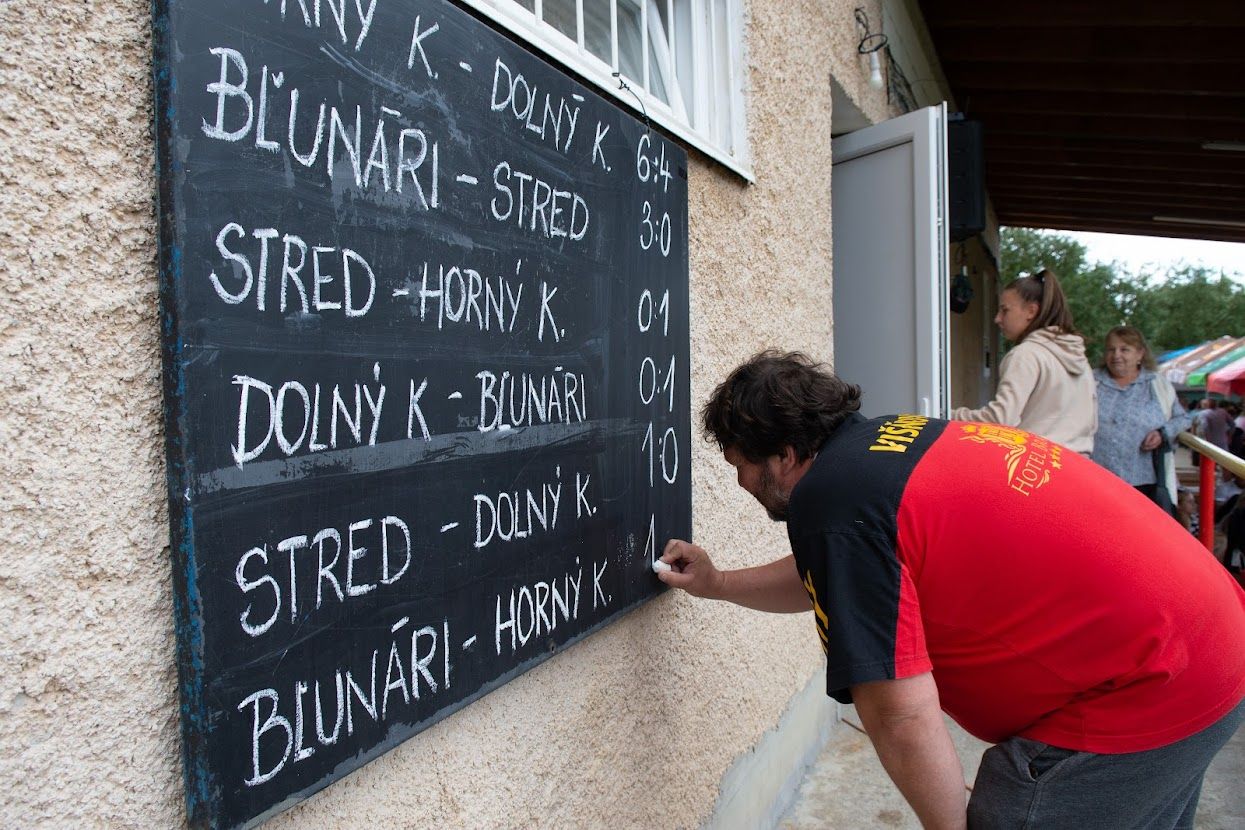 RNÝ K. - DOLNÝ K. 6:4
BĽUNÁRI - STRED 3:0
STRED - HORNÝ K. 0:1
DOLNÝ K - BĽUNÁRI 0:1
STRED - DOLNÝ K. 1:0
BĽUNÁRI - HORNÝ K. 1
HOTEL